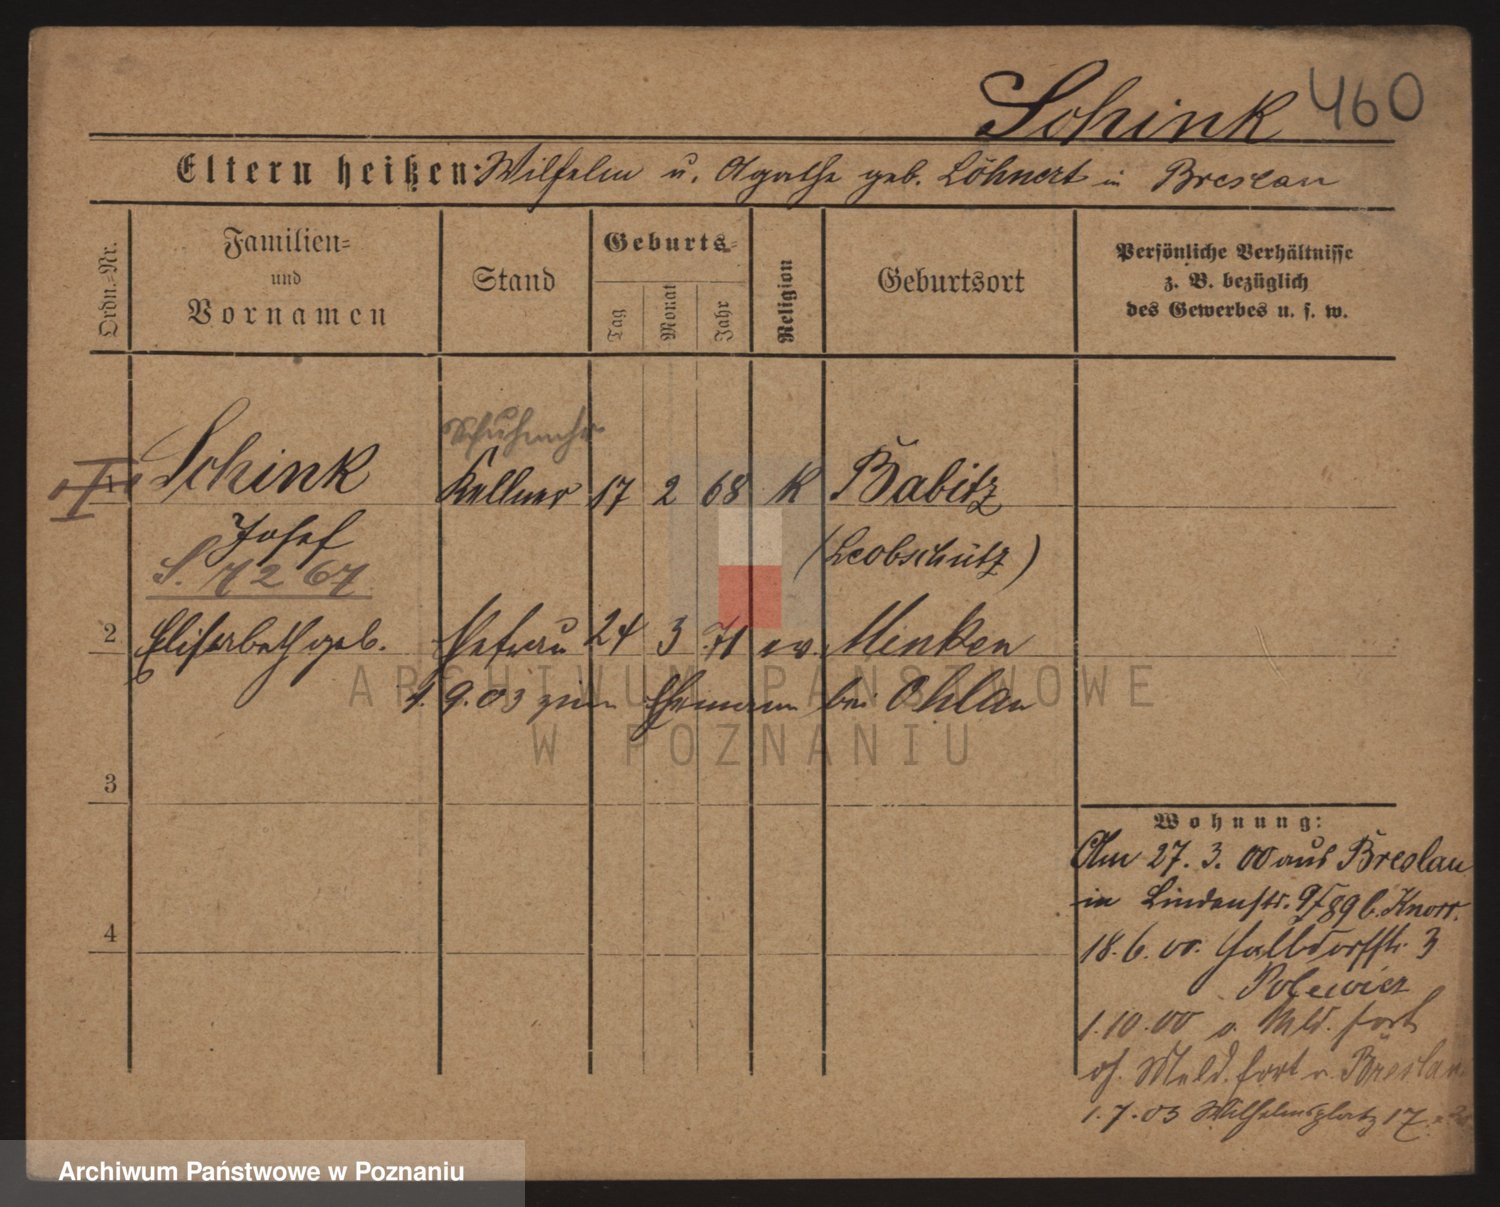 Schink 460
Eltern heißen: Wilhelm u. Agathe geb. Löhnert in Breslau
Ordn.-Nr.
Familien-
und
Vornamen
Stand
Geburts-
Tag
Monat
Jahr
Religion
Geburtsort
Persönliche Verhältnisse
z. B. bezüglich
des Gewerbes u. s. w.
1 Schink Kellner 17 2 68 K Babitz
Josef (Leobschütz)
S. 7 2 67
2 Elisabeth geb. Ehefrau 24 3 71 ev. Minken
1. 9. 03 zum Ehemann bei Ohlau
ARCHIWUM PAŃSTWOWE
W POZNANIU
3
4
Wohnung:
Am 27. 3. 00 aus Breslau
in Lindenstr. 9/89 b. Knorr.
18. 6. 00. Halbdorfstr. 3
1. 10. 00 o. Mld. fort
oh. Meld. fort n. Breslau
1. 7. 03 Wilhelmsplatz 17
Archiwum Państwowe w Poznaniu